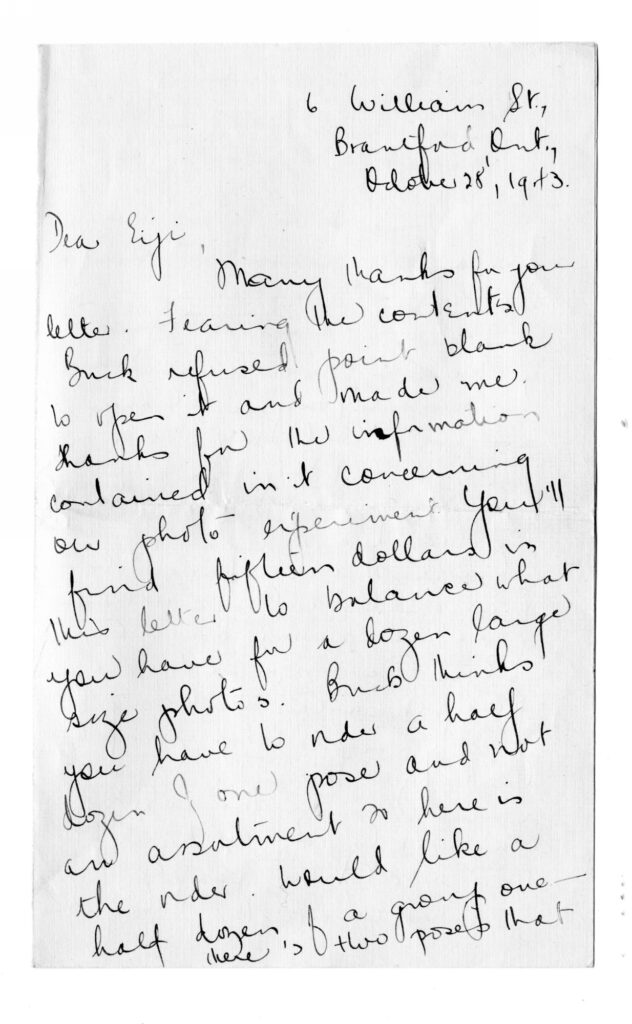 6 William St.,
Brantford, Ont.,
October 28, 1943.
Dear Eiji,
Many thanks for your
letter. Fearing the contents
Buck refused point blank
to open it and made me.
Thanks for the information
contained in it concerning
our photo experiment. You'll
find fifteen dollars in
this letter to balance what
you have for a dozen large
size photos. Buck thinks
you have to order a half
dozen of one pose and not
an assortment so here is
the order. Would like a
half dozen of a group one—
there is two poses that